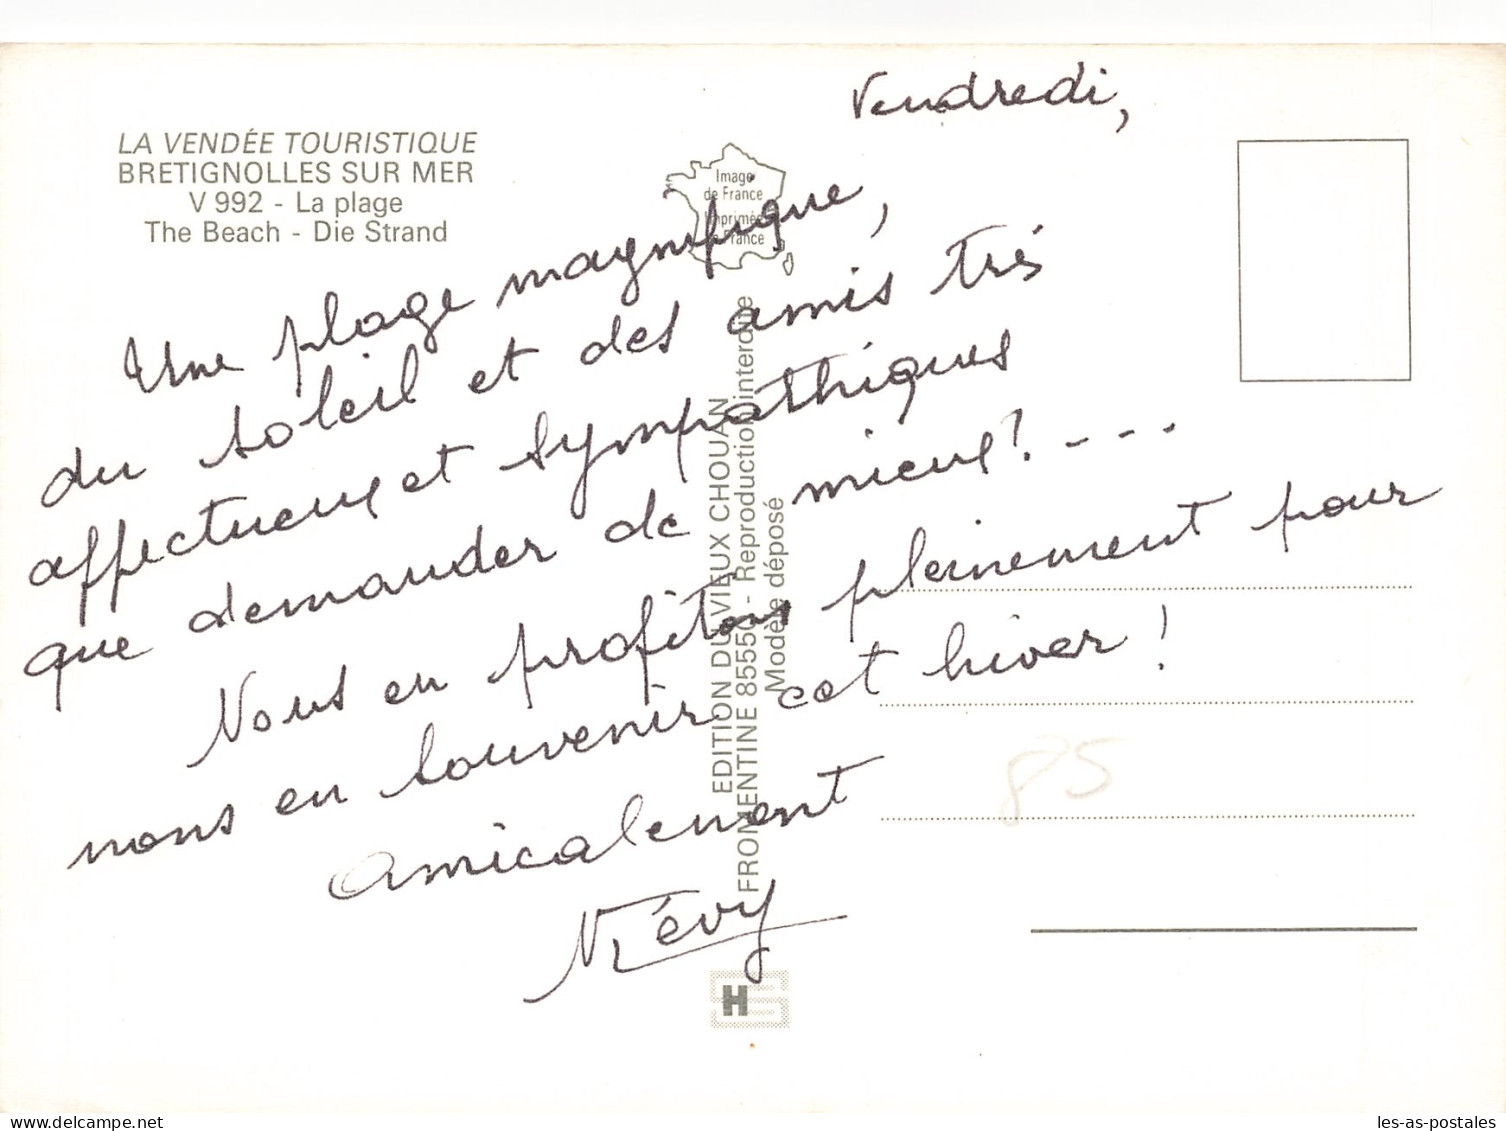 Vendredi,
LA VENDÉE TOURISTIQUE
BRETIGNOLLES SUR MER
V 992 - La plage
The Beach - Die Strand
Image
de France
Imprimée
France
Une plage magnifique,
du soleil et des amis très
affectueux et sympathiques
que demander de mieux ? - - -
Nous en profitons pleinement pour
nous en souvenir cet hiver !
amicalement
EDITION DU VIEUX CHOUAN
FROMENTINE 85550 - Reproduction interdite
Modèle déposé
85
H
delcampe.net
les-as-postales